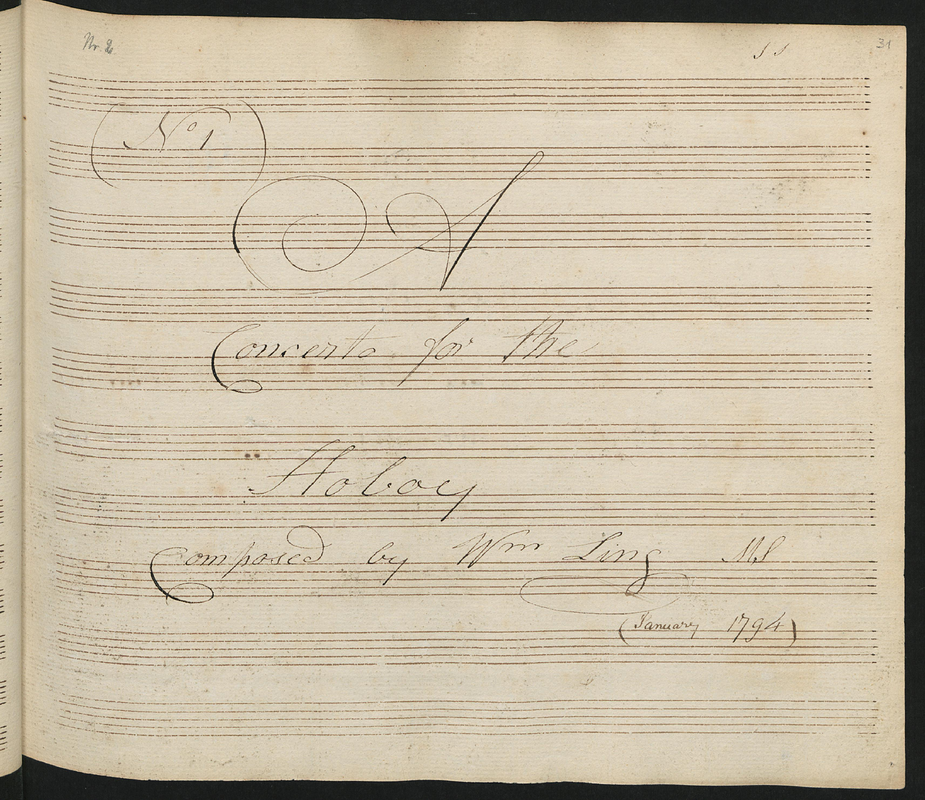 Nr. 2
31
No 1
A
Concerto for the
Hoboy
Composed by Wm Ling MS
(January 1794)